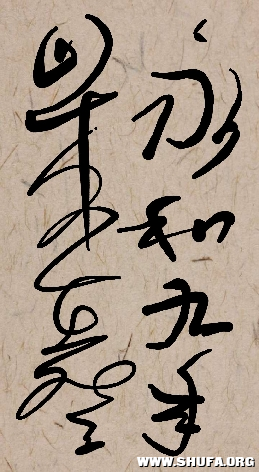 永和九年
歲在癸
WWW.SHUFA.ORG